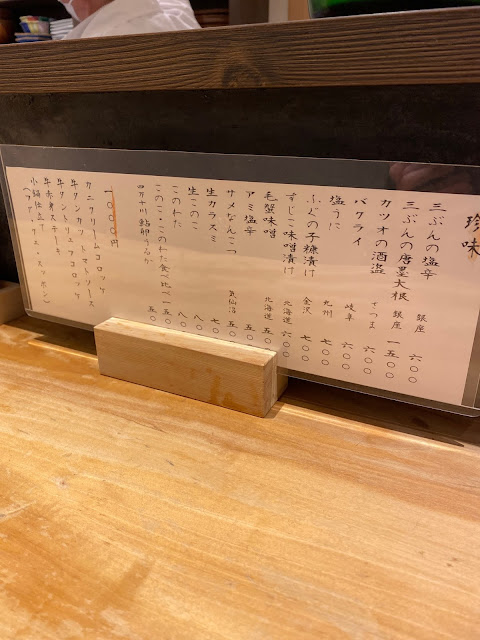 珍味
三ぶんの塩辛 銀座 六〇〇
三ぶんの唐墨大根 銀座 一五〇〇
カツオの酒盗 さつま 六〇〇
バクライ 岐阜 六〇〇
塩うに 九州 七〇〇
ふぐの子糠漬け 金沢 七〇〇
すじこ味噌漬け 北海道 六〇〇
毛蟹味噌 北海道 五〇〇
アミ塩辛 五〇〇
サメなんこつ 気仙沼 五〇〇
生カラスミ 七〇〇
生このこ 八〇〇
このわた 八〇〇
このこ・このわた食べ比べ 一五〇〇
四万十川 鮎卵うるか 五〇〇
一〇〇〇円
カニクリームコロッケ
牛タンカツ トマトソース
牛タントリュフコロッケ
牛赤身ステーキ
小鍋仕立